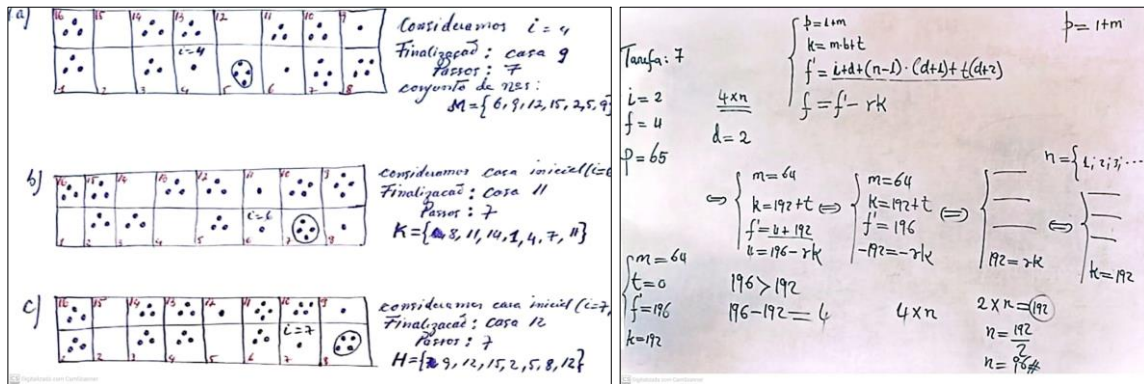 a)
16 15 14 13 12 11 10 9
i=4
1 2 3 4 5 6 7 8
Consideramos i = 4
Finalização: casa 9
Passos: 7
conjunto de nes:
M={6,9,12,15,2,5,9}
b)
16 15 14 13 12 11 10 9
i=6
1 2 3 4 5 6 7 8
consideramos casa inicial (i=6
Finalizacaõ: casa 11
Passos: 7
K={8,11,14,1,4,7,11}
c)
16 15 14 13 12 11 10 9
i=7
1 2 3 4 5 6 7 8
consideramos casa inicial (i=7,
Finalizacaõ: casa 12
Passos: 7
H={9,12,15,2,5,8,12}
CS Digitalizada com CamScanner
Tarefa: 7
i=2
f=4
p=65
4×n
d=2
p=1+m
k=m·b+t
f'=i+d+(n-1)·(d+1)+t(d+2)
f=f'-rk
p=1+m
n={1,2,3,...
⇔ m=64
k=192+t
f'=4+192
4=196-rk
⇔ m=64
k=192+t
f'=196
-192=-rk
⇔
192=rk
⇔
k=192
m=64
t=0
f'=196
k=192
196>192
196-192=4
4×n
2×n=192
n=192/2
n=96#
CS Digitalizada com CamScanner